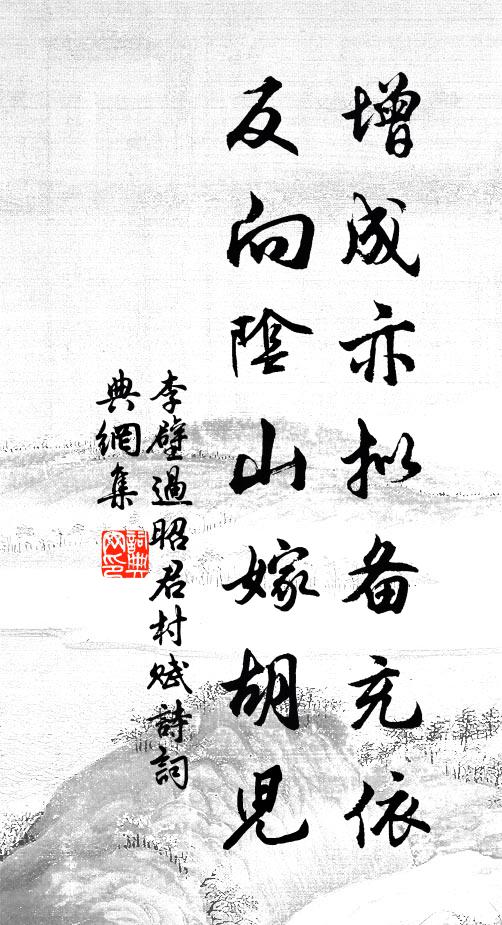 增成亦拟备充依
反向陰山嫁胡兒
李壁過昭君村賦詩詞
典網集
詞典
网印